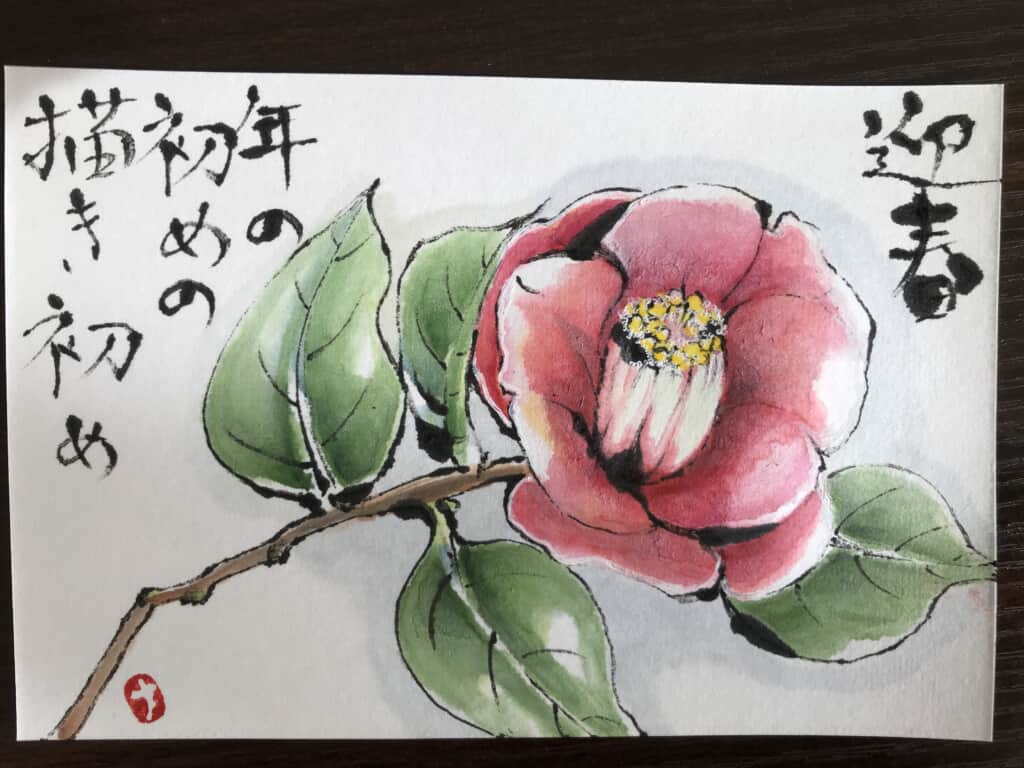 迎春
年の
初めの
描き初め